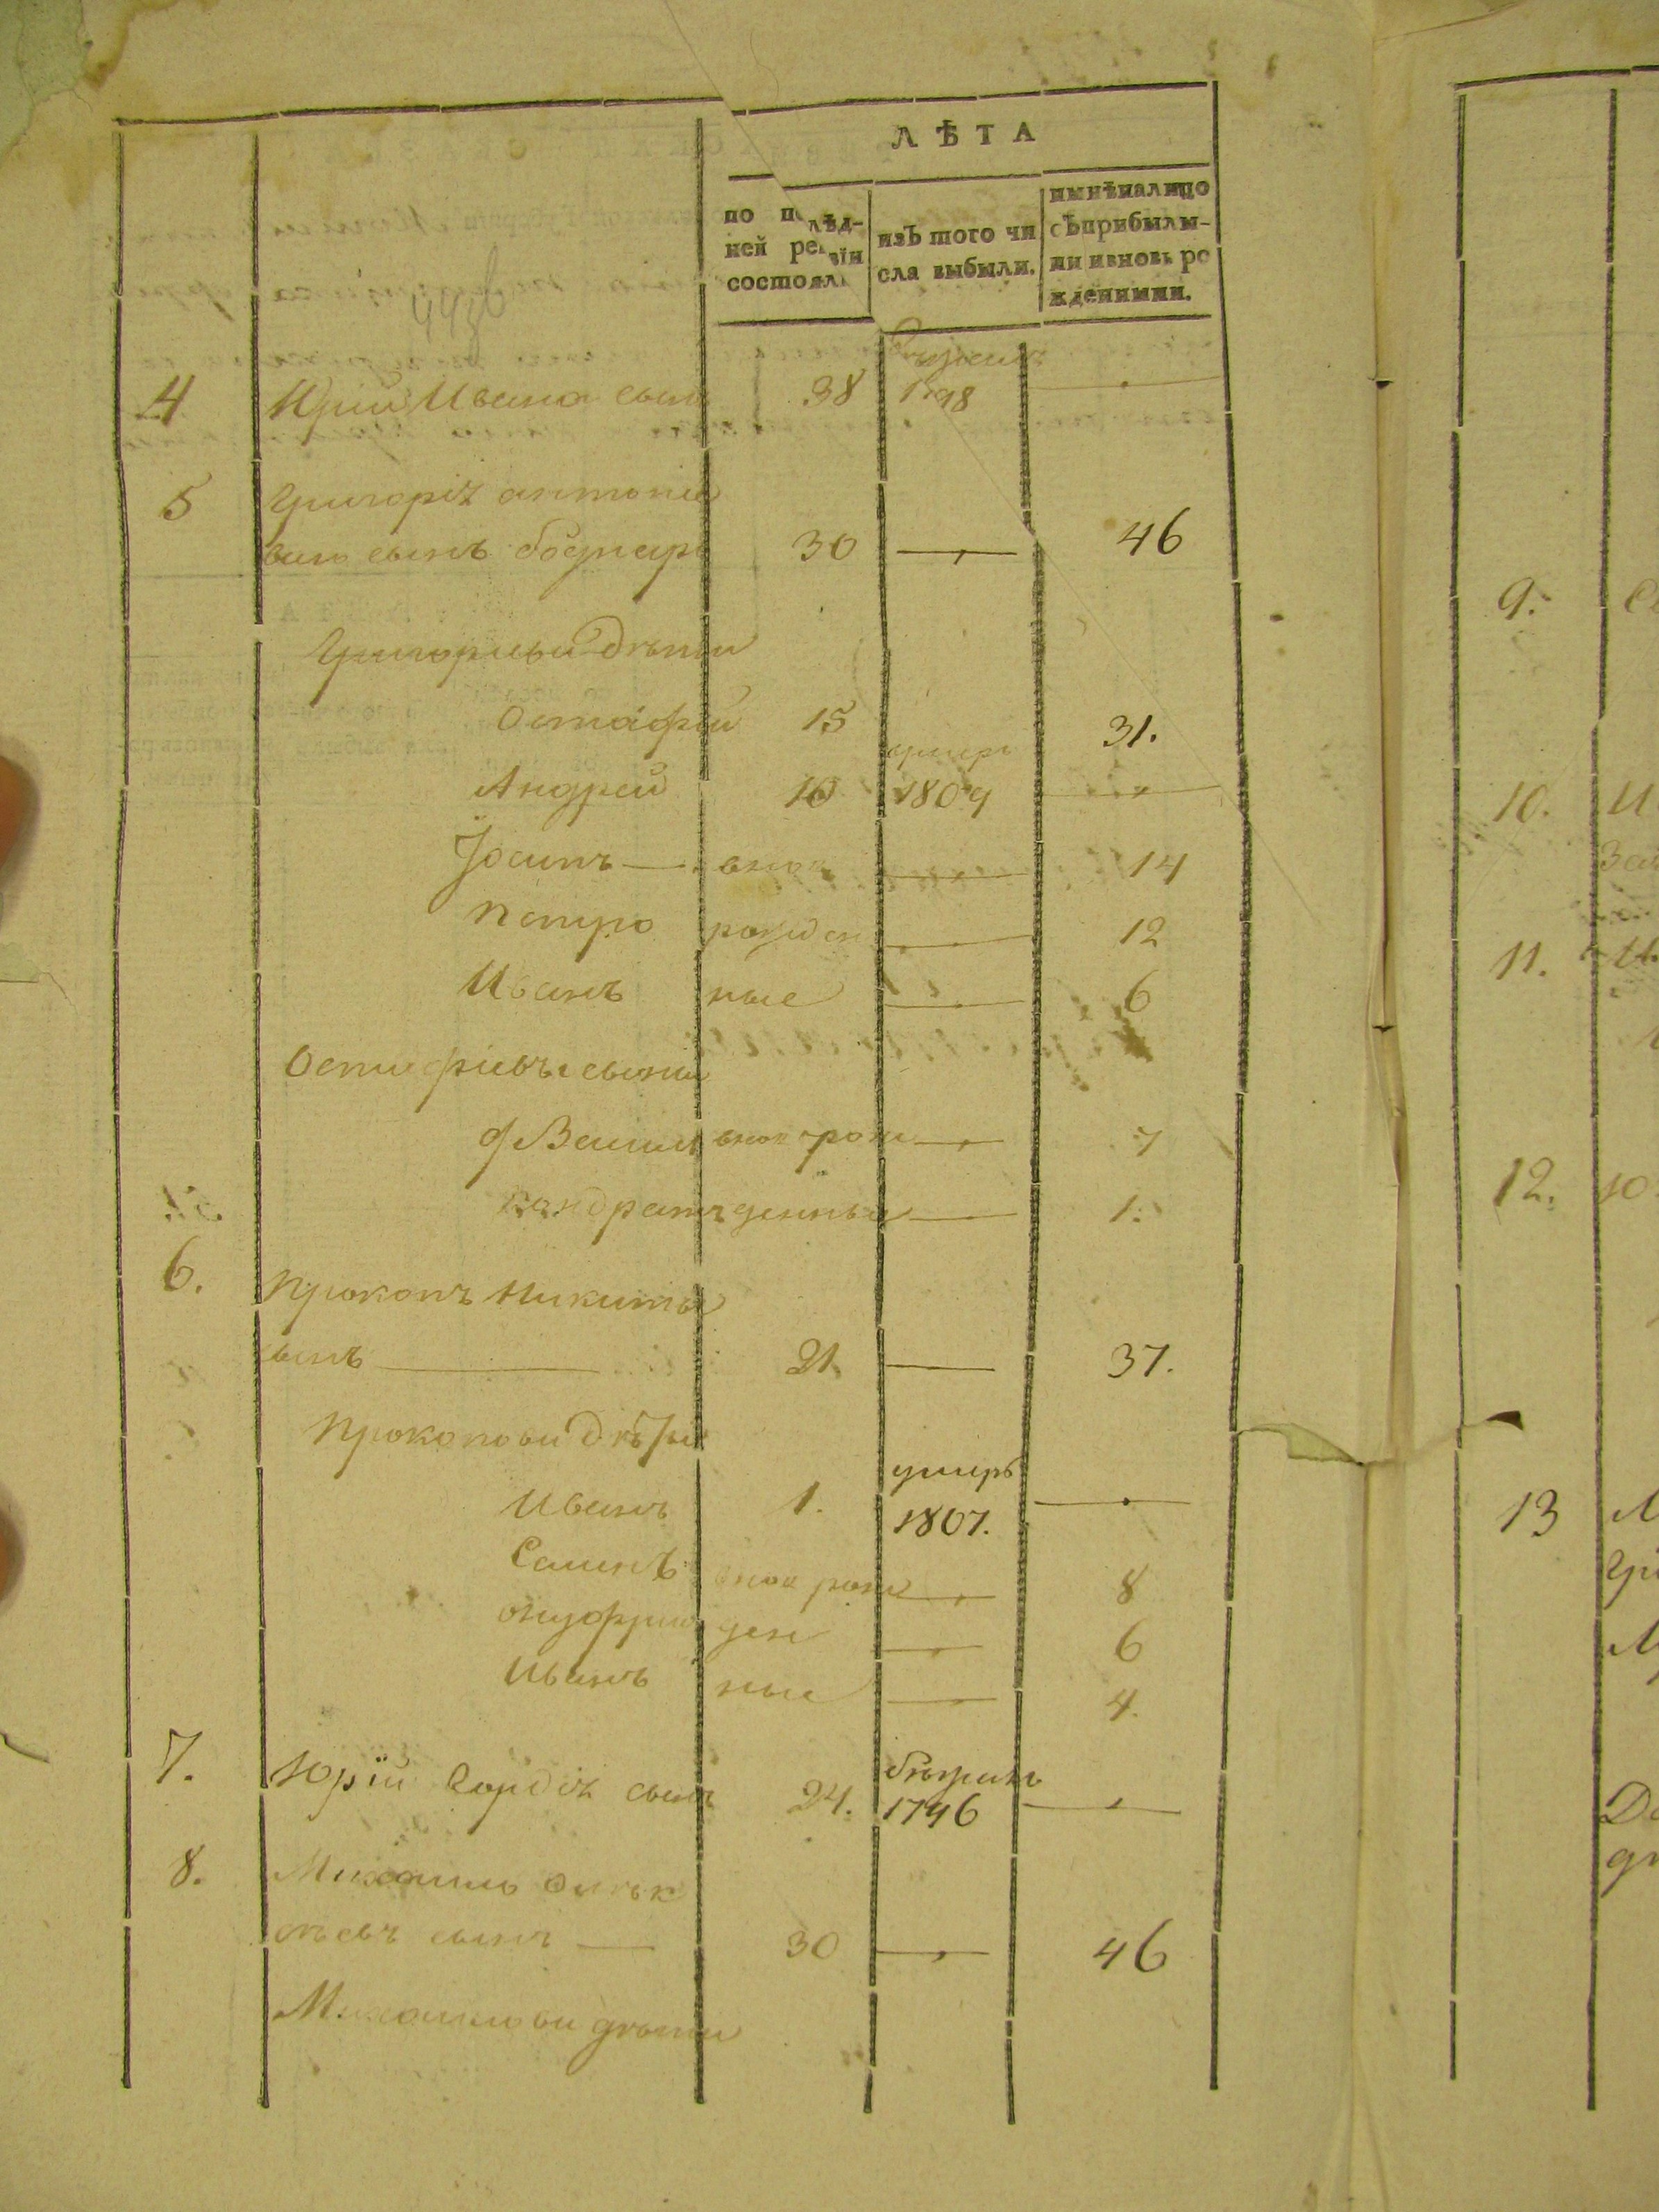 ЛѢТА
по послѣд-
ней ревизіи
состояли
изъ того чи
сла выбыли.
нынѣ на лицо
съ прибылы-
ми и вновь ро
жденными.
4 Юрий Ивана сынъ 38 1798 —
5 Григорій антоніе
вич сынъ боднаръ 30 — 46
Григориеви дѣти
Остафій 15 31.
Андрей 10 умеръ 1809 —
Јоанъ — внов — 14
Петро рожден — 12
Иванъ ные — 6
Остафіевы сыни
Васил внов рож — 7
Кондратъ денные — 1.
6. Прокопъ Никиты
сынъ — 21. — 37.
Прокопови дѣти
Иванъ 1. умеръ 1807. —
Семенъ внов рож — 8
онуфрий ден — 6
Иванъ ные — 4.
7. Юрій сынъ 24. бѣжалъ 1796 —
8. Михаило
сынъ — 30 — 46
Михаилови дѣти
9.
10.
11.
12.
13